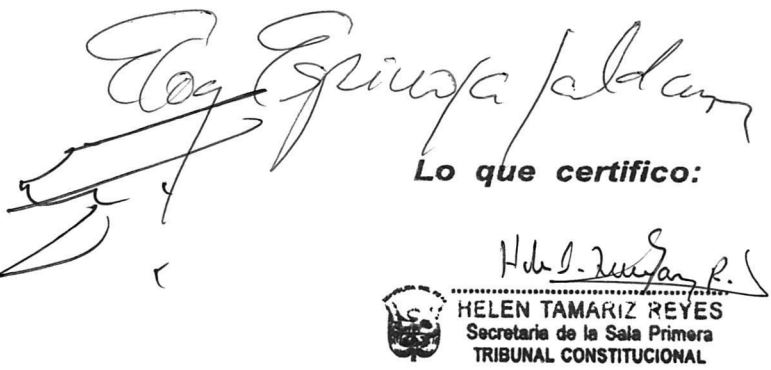 Eloy Espinosa Saldaña
Lo que certifico:
HELEN TAMARIZ REYES
Secretaria de la Sala Primera
TRIBUNAL CONSTITUCIONAL